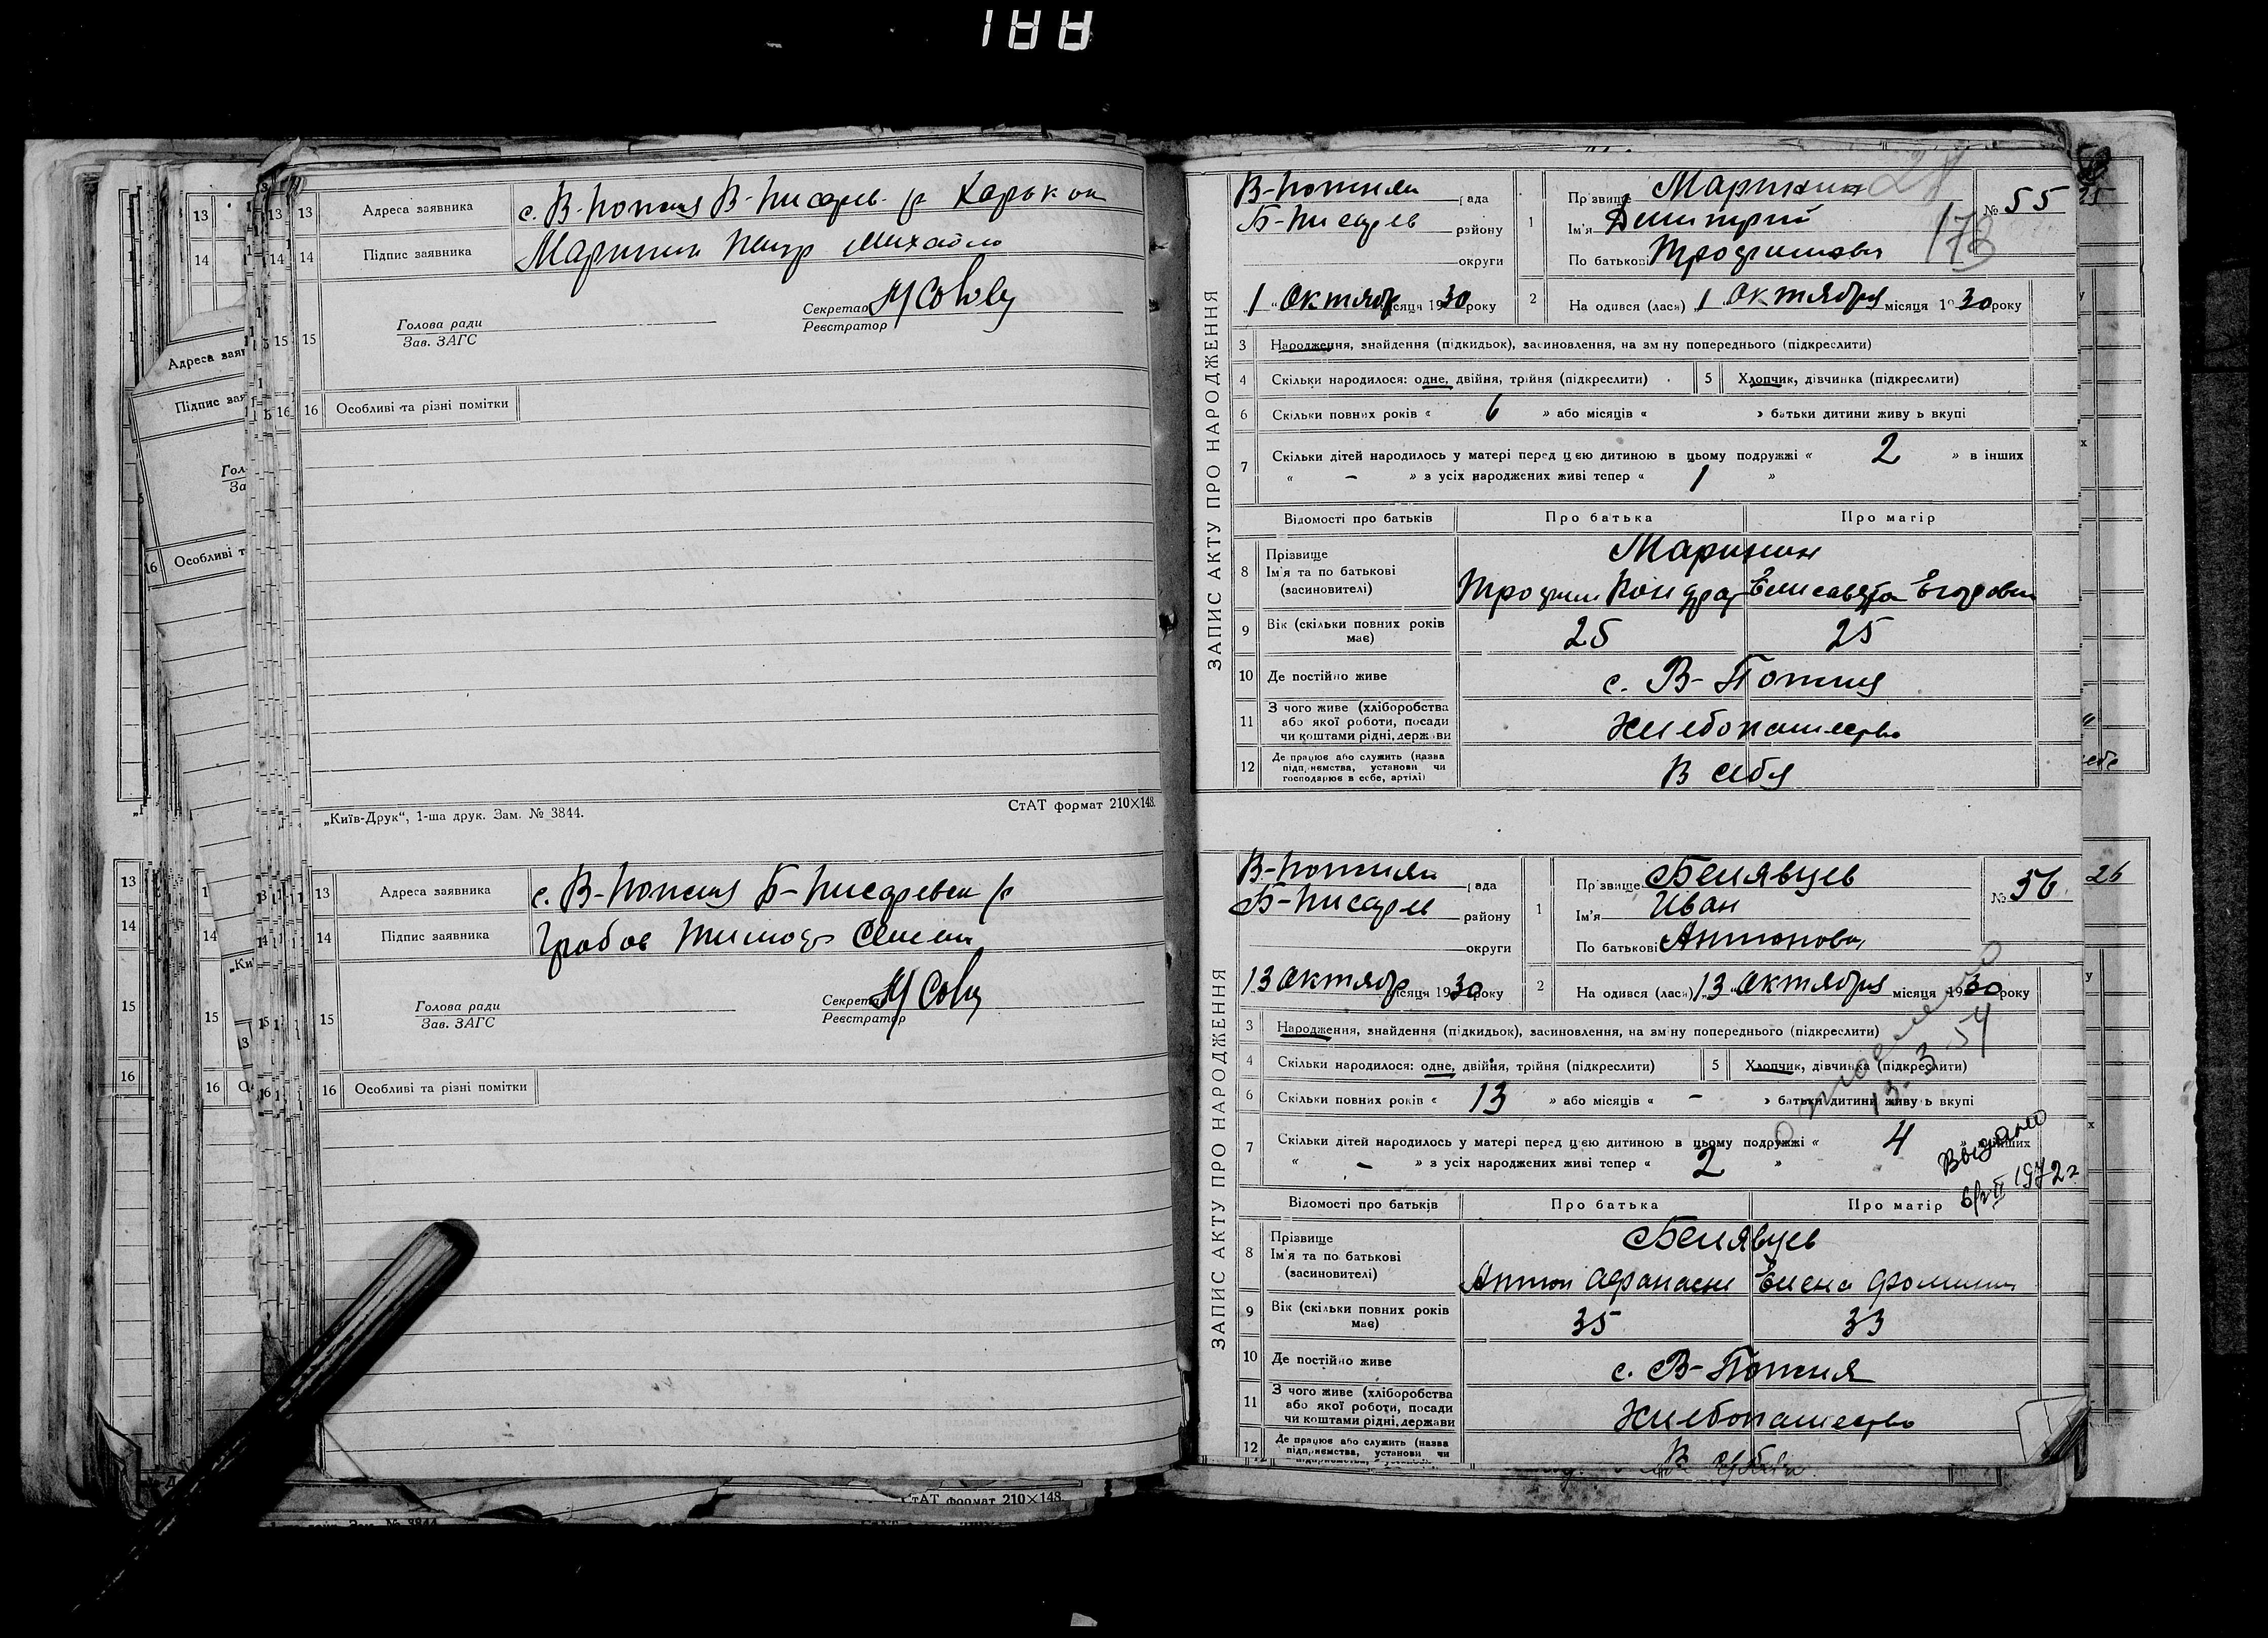 188
13 Адреса заявника с. В-Пожня В-Писарев. р Харьков
14 Підпис заявника Маринин Петр Михайло
15 Голова ради
Зав. ЗАГС
Секретар
Реєстратор
16 Особливі та різні помітки
„Київ-Друк“, 1-ша друк. Зам. № 3844.
СтАТ формат 210×148.
13 Адреса заявника с. В-Пожня Б-Писаревск р
14 Підпис заявника Грабов Тимоф Семен
15 Голова ради
Зав. ЗАГС
Секретар
Реєстратор
16 Особливі та різні помітки
СтАТ формат 210×148.
ЗАПИС АКТУ ПРО НАРОДЖЕННЯ
В-Пожнян рада
Б-Писарев району
округи
„1“ Октябр місяця 1930 року
1 Прізвище Маринин
Ім'я Дмитрий
По батькові Трофимович
№ 55
28
173
2 Народився (лась) 1 Октября місяця 1930 року
3 Народження, знайдення (підкидьок), засиновлення, на зміну попереднього (підкреслити)
4 Скільки народилося: одне, двійня, трійня (підкреслити)
5 Хлопчик, дівчинка (підкреслити)
6 Скільки повних років « 6 » або місяців « » батьки дитини живуть вкупі
7 Скільки дітей народилось у матері перед цією дитиною в цьому подружжі « 2 » в інших
« – » з усіх народжених живі тепер « 1 »
Відомості про батьків Про батька Про матір
8 Прізвище
Ім'я та по батькові
(засиновителі)
Маринин
Трофим Кондрат Елисавета Егоровн
9 Вік (скільки повних років має) 25 25
10 Де постійно живе с. В-Пожня
11 З чого живе (хліборобства
або якої роботи, посади
чи коштами рідні, держави
Хлебопашество
12 Де працює або служить (назва
підприємства, установи чи
господарює в себе, артілі)
В себя
ЗАПИС АКТУ ПРО НАРОДЖЕННЯ
В-Пожнян рада
Б-Писарев району
округи
13 Октябр місяця 1930 року
1 Прізвище Белявцев
Ім'я Иван
По батькові Антонови
№ 56
2 Народився (лась) 13 Октября місяця 1930 року
3 Народження, знайдення (підкидьок), засиновлення, на зміну попереднього (підкреслити)
4 Скільки народилося: одне, двійня, трійня (підкреслити)
5 Хлопчик, дівчинка (підкреслити)
6 Скільки повних років « 13 » або місяців « – » батьки дитини живуть вкупі
13. 3. 54
7 Скільки дітей народилось у матері перед цією дитиною в цьому подружжі « 4 » в інших
« – » з усіх народжених живі тепер « 2 »
Выдано
1972 г.
Відомості про батьків Про батька Про матір
8 Прізвище
Ім'я та по батькові
(засиновителі)
Белявцев
Антон Афанасие Елена Фоминич
9 Вік (скільки повних років має) 35 33
10 Де постійно живе с. В-Пожня
11 З чого живе (хліборобства
або якої роботи, посади
чи коштами рідні, держави
Хлебопашество
12 Де працює або служить (назва
підприємства, установи чи
25
26